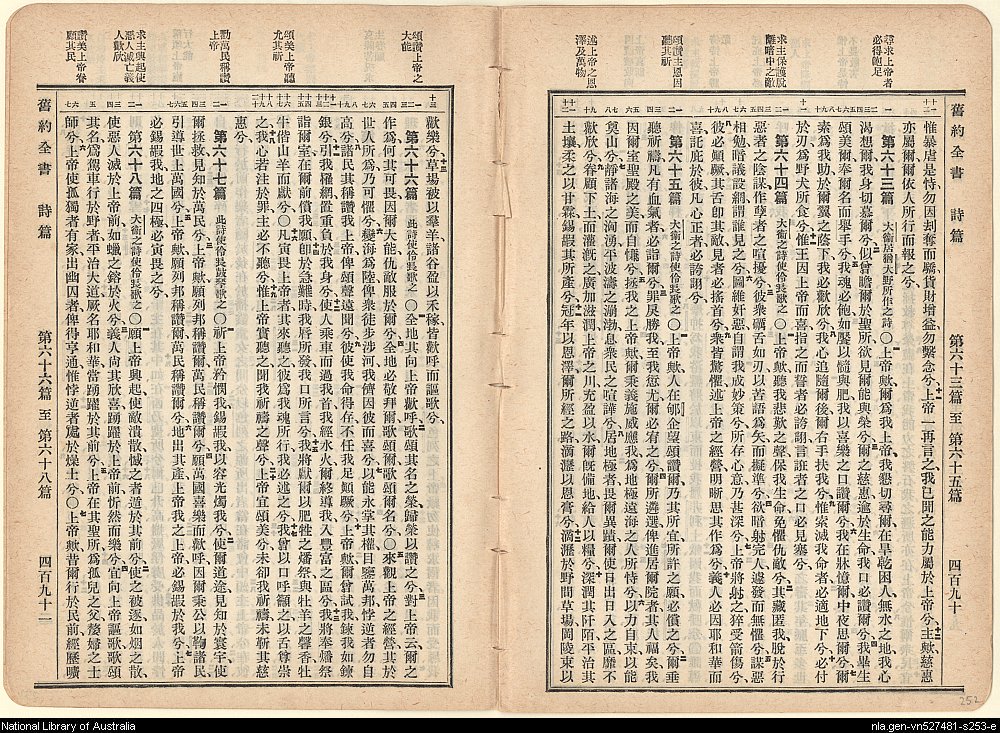 尋求上帝者
必得飽足
求主保護脫
離暗中之敵
頌讚主恩因
聽其祈
述上帝之恩
澤及萬物
舊約全書 詩篇 第六十三篇 至 第六十五篇 四百九十
惟暴虐是恃勿因刦奪而驕貨財增益勿繫念兮上帝一再言之我已聞之能力屬於上帝兮主歟慈惠
亦屬爾爾依人所行而報之兮
第六十三篇 大衛居猶大野所作之詩 〇上帝歟爾爲我上帝我懇切尋爾在旱乾困人無水之地我心
渴想爾我身切慕爾兮似曾瞻爾於聖所欲見爾能與榮兮爾之慈惠逾於生命我口必讚爾兮我畢生
頌美爾奉爾名而舉手兮我魂必飽如饜以髓與肥我以喜樂之口讚爾兮我在牀憶爾中夜思爾兮爾
素爲我助於爾翼之蔭下我必歡欣兮我心追隨爾後爾右手扶我兮惟索滅我命者必適地下兮必付
於刃爲野犬所食兮惟王因上帝而喜指之而誓者必誇詡言誑者之口必見塞兮
第六十四篇 大衛之詩使伶長歌之 〇上帝歟聽我悲歎之聲保我生命免懼仇敵兮其藏匿我脫於行
惡者之陰謀作孽者之喧擾兮彼衆礪舌如刃以苦語爲矢而擬準兮欲暗射完人遽發而無懼兮謀惡
相勉暗議設網謂誰見之兮圖維奸惡自謂我成妙策兮所存心意乃甚深兮上帝將射之猝受箭傷兮
彼必顚厥其舌卽其敵見者必搖首兮衆皆驚懼述上帝之經營明晰思其作爲兮義人必因耶和華而
喜託庇於彼凡心正者必誇詡兮
第六十五篇 大衛之詩使伶長歌之 〇上帝歟人在郇企望頌讚爾乃其所宜所許之願必償之兮爾垂
聽祈禱凡有血氣者必詣爾兮罪戾勝我至我愆尤爾必宥之兮爾所遴選俾進居爾院者其人福矣我
因爾室聖殿之美而自慊兮拯我之上帝歟爾秉義施威應我爲地極遠海之人所恃兮以力自束以能
奠山兮靜諸海之洶湧平波濤之澎渤息衆民之喧譁兮居地極者畏爾異蹟爾使日出日入之區靡不
歡欣兮眷顧下土而灌溉之廣加滋潤上帝之川充盈以水爾旣備地給人以糧兮深淯其阡陌平治其
土壤柔之以甘霖錫嘏其所產兮冠年以恩澤爾所經之路滴瀝以恩膏兮滴瀝於野間草場岡陵東以
頌讚上帝之
大能
頌美上帝聽
允其祈
勸萬民稱讚
上帝
求主興起使
惡人滅亡義
人歡欣
讚美上帝眷
顧其民
歡樂兮草場被以羣羊諸谷盈以禾稼皆歡呼而謳歌兮
第六十六篇 此詩使伶長歌之 〇全地向上帝歡呼歌頌其名之榮歸榮以讚之兮對上帝云爾之
作爲何其可畏因爾大能仇敵服於爾兮全地必敬拜爾歌頌爾歌頌爾名兮〇來觀上帝之經營其於
世人所爲乃可懼兮變海爲陸俾衆徒步涉河我儕因彼而喜兮以能永掌其權目鑒萬邦悖逆者勿自
高兮諸民其稱讚我上帝俾頌聲遠聞兮彼使我命得存不任我足顚蹶兮上帝歟爾曾試我鍊我如鍊
銀兮引我罹網置重負於我身兮使人乘車而過我首我經水火爾終導我入豐富之區兮我將奉燔祭
詣爾室在爾前償我願卽於急難時我脣所發我口所言兮我將獻爾以肥牲之燔祭與牡羊之馨香牡
牛偕山羊而獻兮〇凡寅畏上帝者其來聽之彼爲我魂所行我必述之兮我曾以口呼籲之以舌尊崇
之我心若注於罪主必不聽兮惟上帝實聽之聞我祈禱之聲兮上帝宜頌美兮未卻我祈禱未靳其慈
惠兮
第六十七篇 此詩使伶長鼓琴歌之 〇祈上帝矜憫我錫嘏我以容光燭我兮使爾道途見知於寰宇使
爾拯救見知於萬民兮上帝歟願列邦稱讚爾萬民稱讚爾兮願萬國喜樂而歡呼因爾秉公以鞫諸民
引導世上萬國兮上帝歟願列邦稱讚爾萬民稱讚爾兮地出其產上帝我之上帝必錫嘏於我兮上帝
必錫嘏我地之四極必寅畏之兮
第六十八篇 大衛之詩使伶長歌之 〇願上帝興起使敵潰散憾之者遁於其前兮使之被逐如烟之散
使惡人滅於上帝前如蠟之鎔於火兮義人尚其欣喜踴躍於上帝前忻然而樂兮宜向上帝謳歌歌頌
其名爲駕車行於野者平治大道厥名耶和華當踴躍於其前兮上帝在其聖所爲孤兒之父嫠婦之士
師兮上帝使孤獨者有家出幽囚者俾得亨通惟悖逆者處於燥土兮〇上帝歟昔爾行於民前經歷曠
舊約全書 詩篇 第六十六篇 至 第六十八篇 四百九十一
252
National Library of Australia
nla.gen-vn527481-s253-e